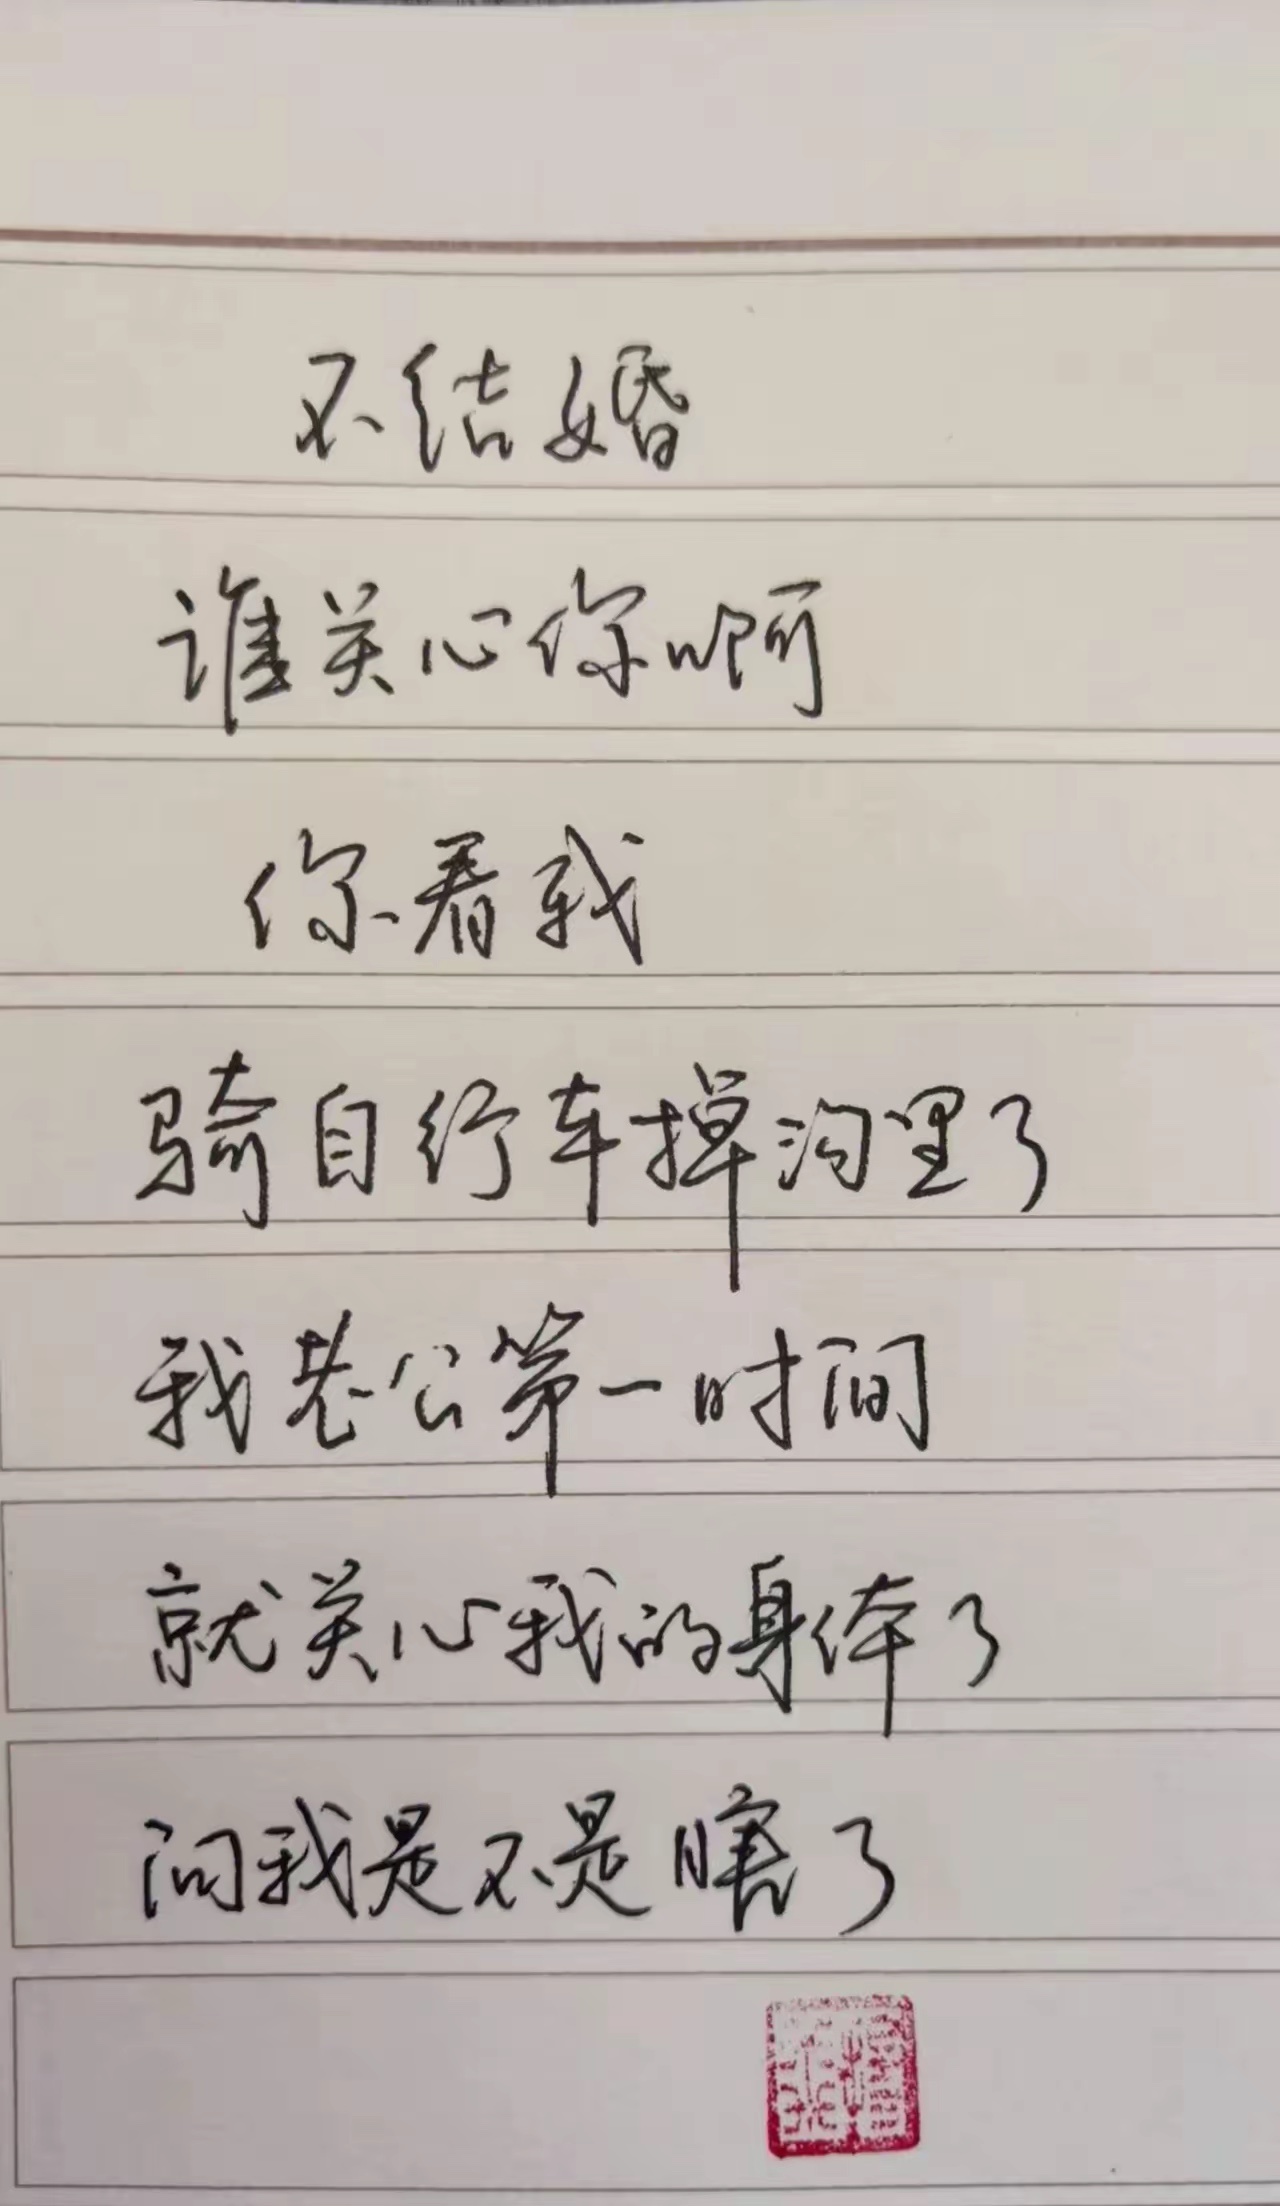 不结婚
谁关心你啊
你看我
骑自行车掉沟里了
我老公第一时间
就关心我的身体了
问我是不是瞎了